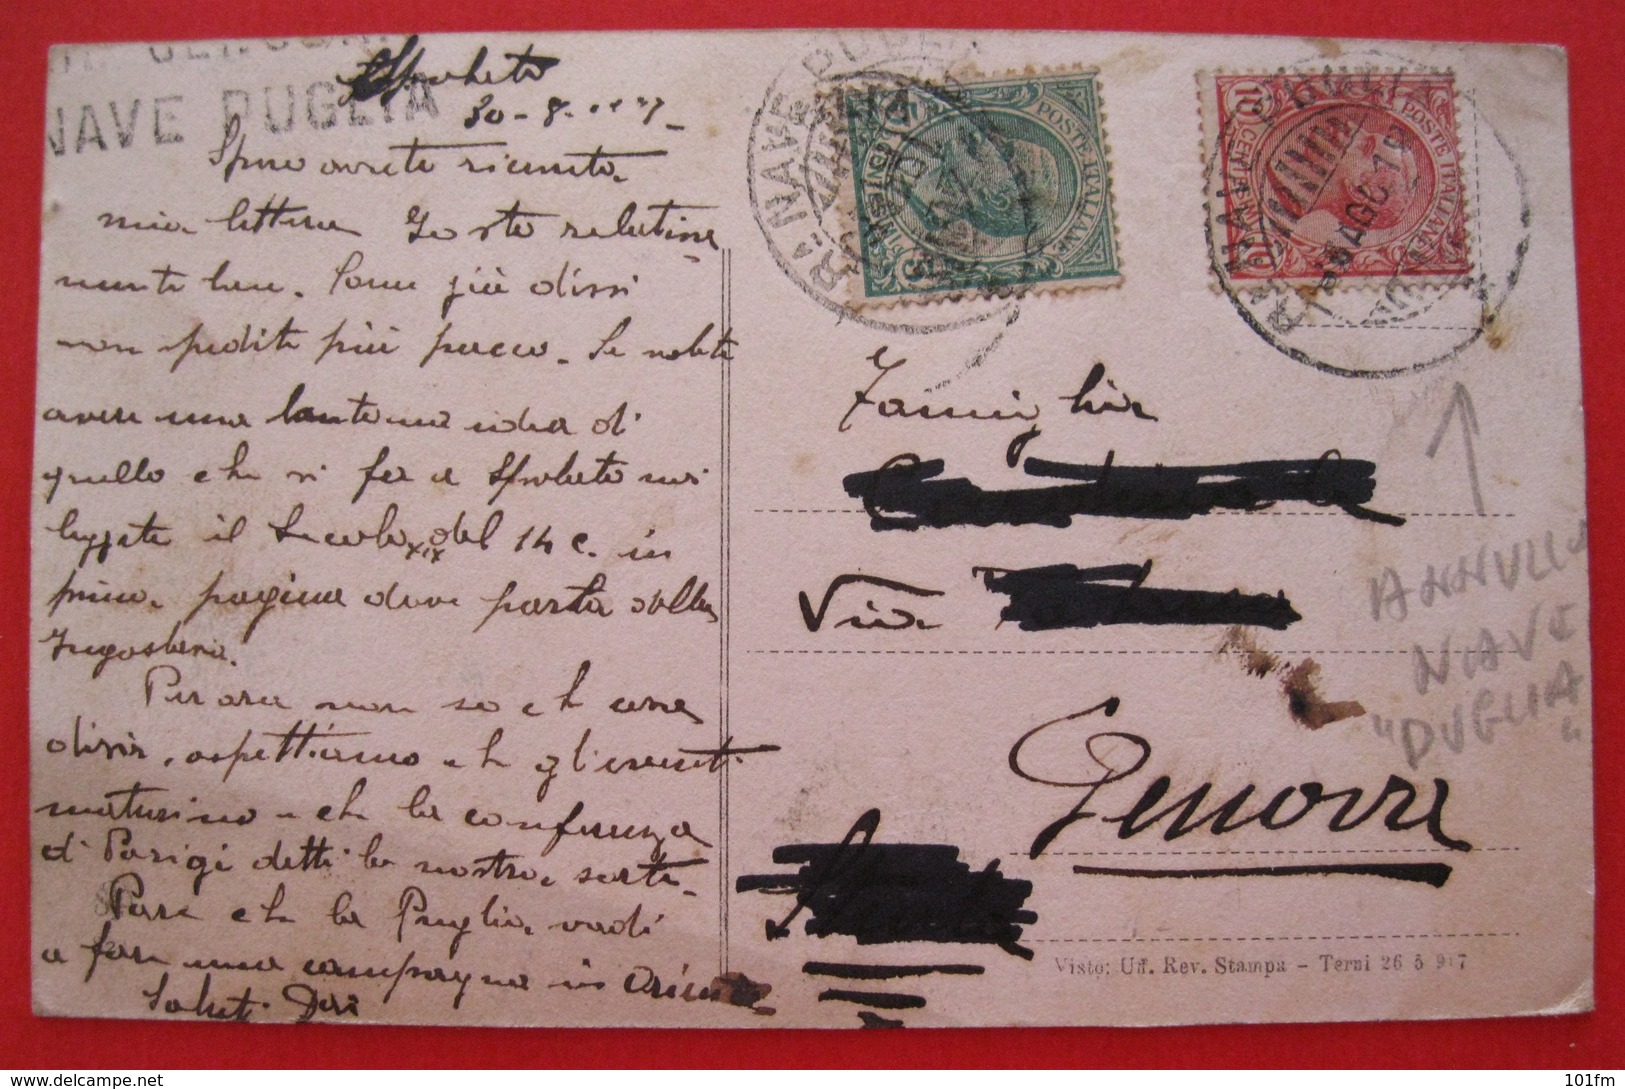 NAVE PUGLIA
Spalato
30-8-
Spero avrete ricevuto
mia lettera Io sto relativa
mente bene. Come già dissi
non spedite più pacco. Se volete
avere una lontana idea di
quello che si fa a Spalato voi
leggete il Secolo XIX del 14 c. in
prima pagina dove parla della
Jugoslavia.
Per ora non so che cosa
dirvi, aspettiamo che gli eventi
maturino e che la conferenza
di Parigi detti la nostra sorte.
Pare che la Puglia vadi
a fare una campagna in Oriente
Saluti
R. NAVE PUGLIA
POSTE ITALIANE
POSTE ITALIANE
10 CENT.
AGO 19
Famiglia
Via
Genova
ANNULLO
NAVE
"PUGLIA"
Visto: Uff. Rev. Stampa - Terni 26 5 917
101fm